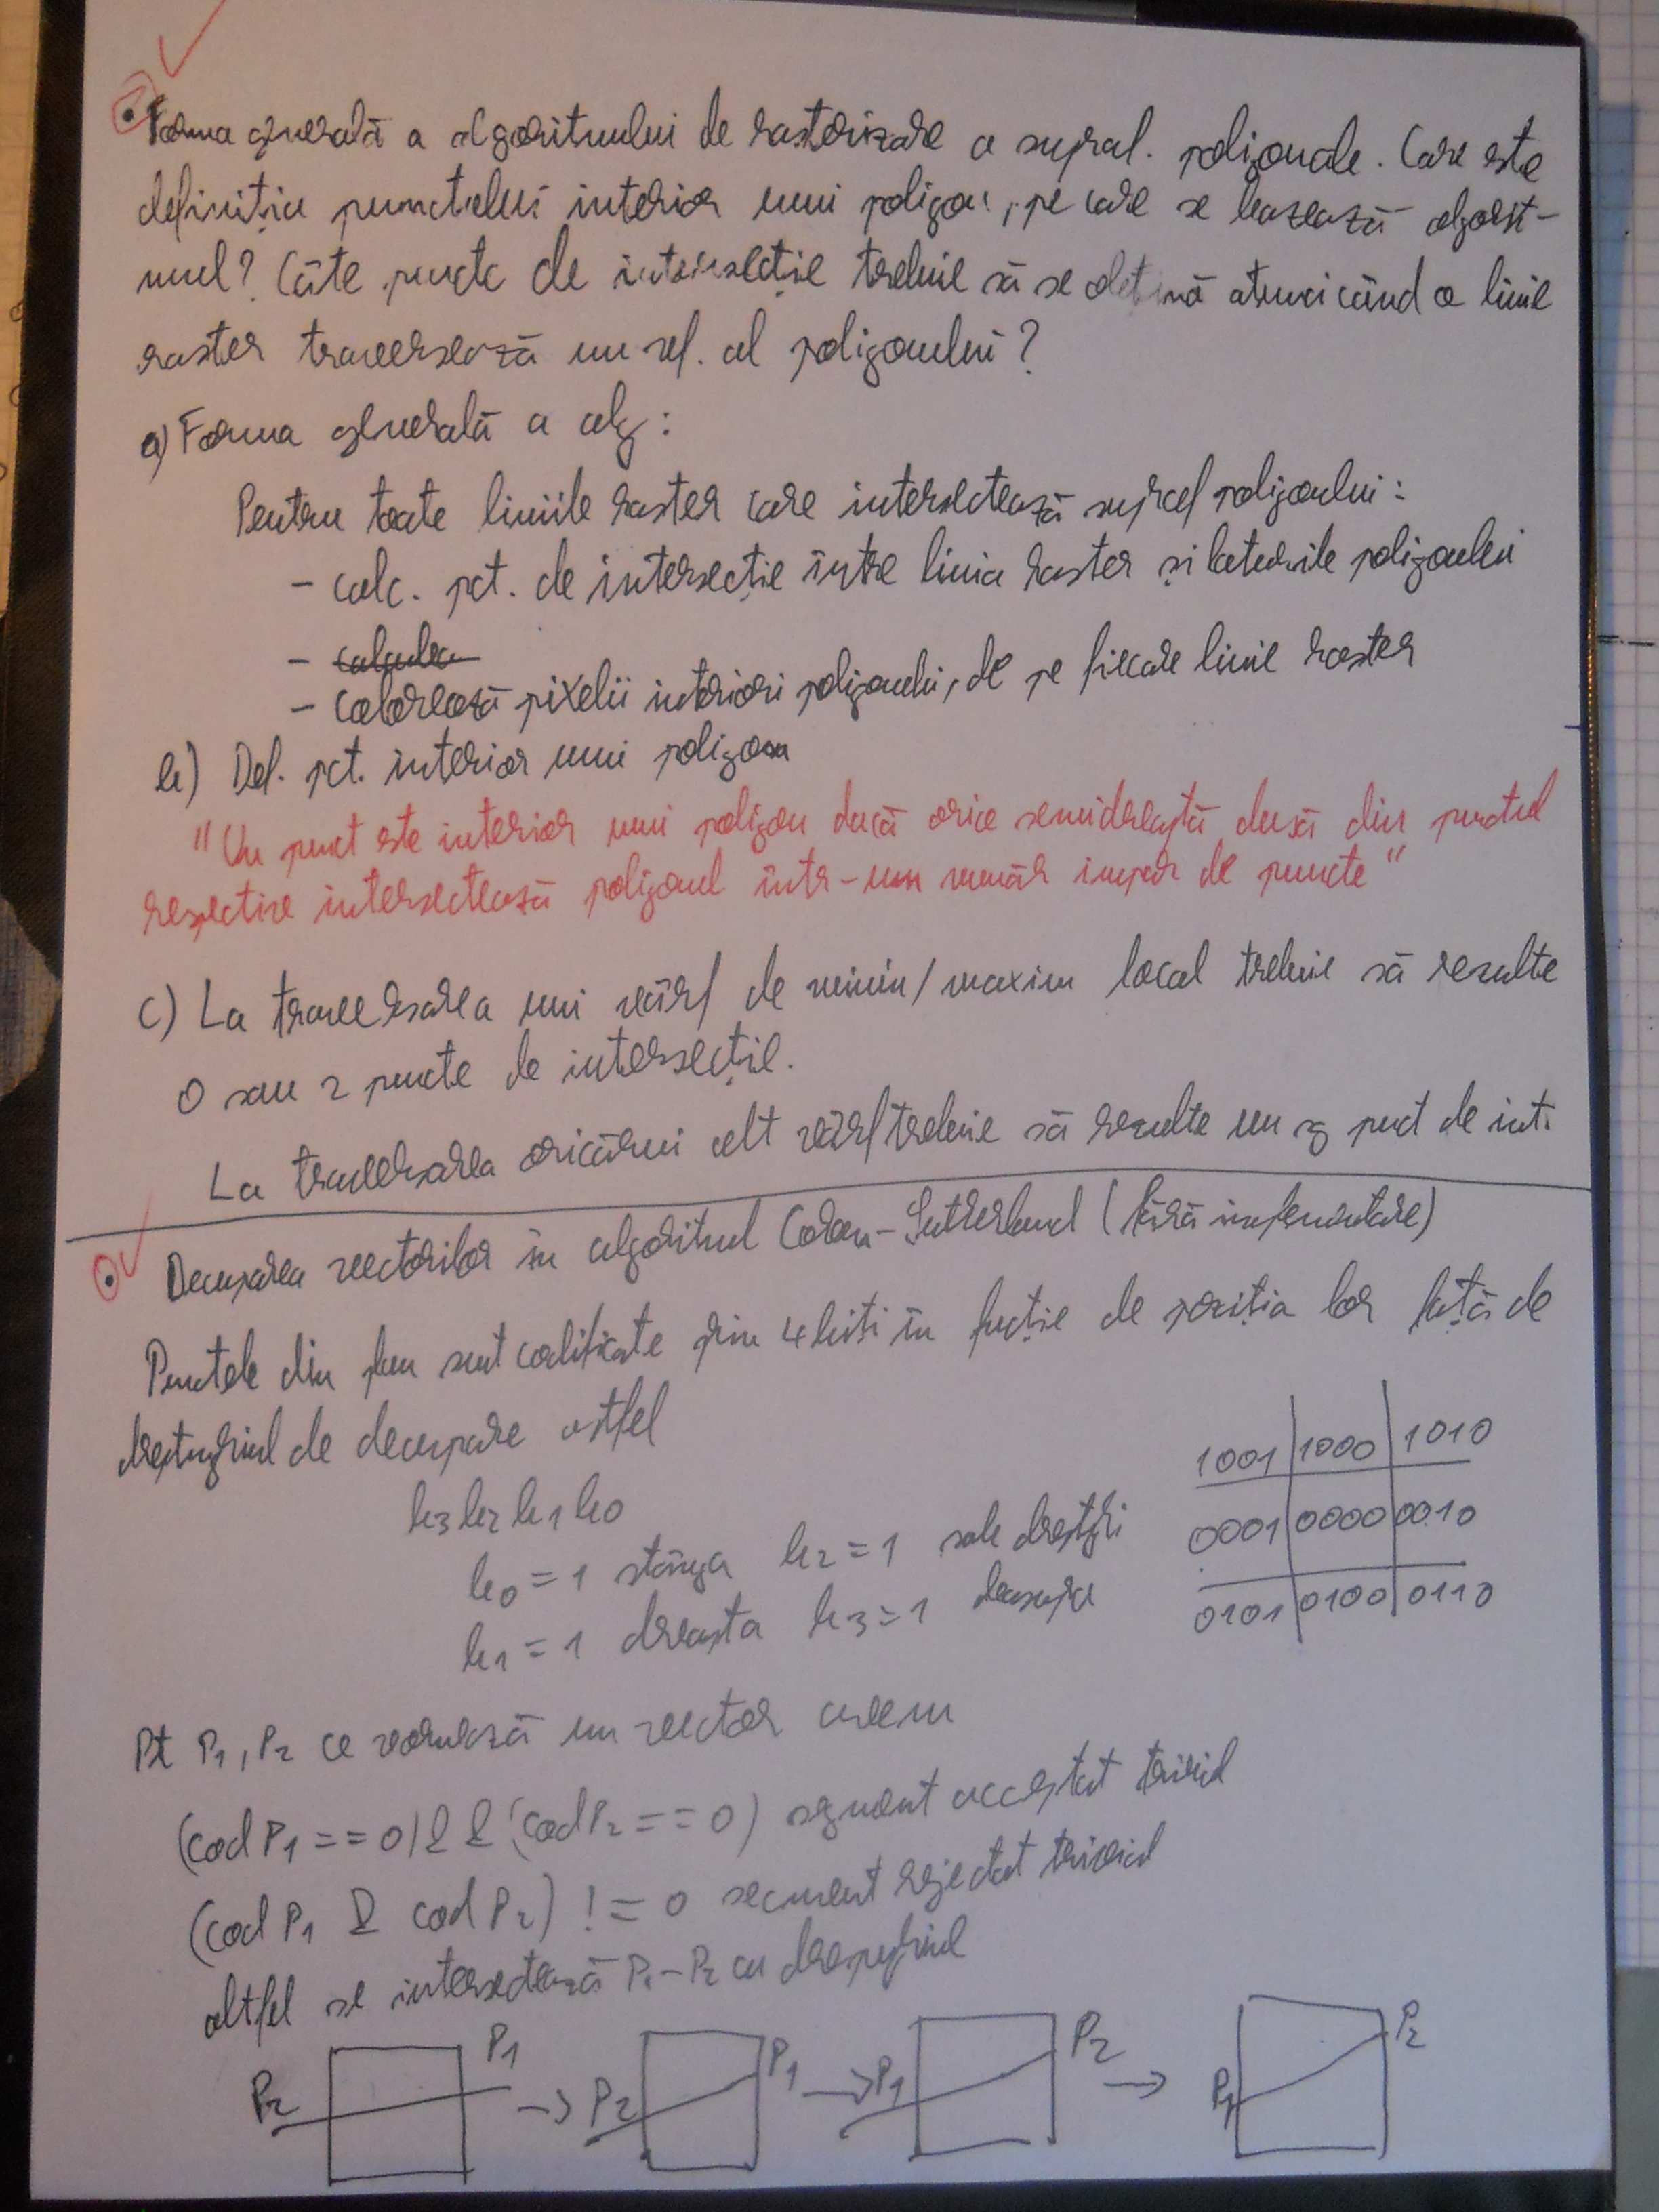 Forma generală a algoritmului de rasterizare a supraf. poligonale. Care este
definiția punctului interior unui poligon, pe care se bazează algorit-
mul? Câte puncte de intersecție trebuie să se obțină atunci când o linie
raster traversează un vf. al poligonului?
a) Forma generală a alg:
Pentru toate liniile raster care intersectează supraf poligonului:
- calc. pct. de intersecție între linia raster și laturile poligonului
- calculea
- colorează pixelii interiori poligonului, de pe fiecare linie raster
b) Def. pct. interior unui poligon
"Un punct este interior unui poligon dacă orice semidreaptă dusă din punctul
respectiv intersectează poligonul într-un număr impar de puncte"
c) La traversarea unui vârf de minim/maxim local trebuie să rezulte
0 sau 2 puncte de intersecție.
La traversarea oricărui alt vârf trebuie să rezulte un sg punct de int.
Decuparea vectorilor în algoritmul Cohen-Sutherland (fără implementare)
Punctele din plan sunt codificate prin 4 biți în funcție de poziția lor față de
dreptunghiul de decupare astfel
b3 b2 b1 b0
b0 = 1 stânga b2 = 1 sub dreptghi
b1 = 1 dreapta b3 = 1 deasupra
1001 1000 1010
0001 0000 0010
0101 0100 0110
Pt P1, P2 ce formează un vector avem
(cod P1 == 0) && (cod P2 == 0) segment acceptat trivial
(cod P1 & cod P2) != 0 segment rejectat trivial
altfel se intersectează P1-P2 cu
P2 P1 → P2 P1 → P1 P2 → P1 P2